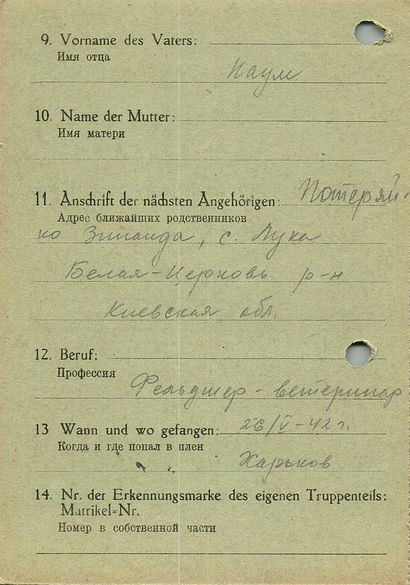 9. Vorname des Vaters:
Имя отца
Наум
10. Name der Mutter:
Имя матери
11. Anschrift der nächsten Angehörigen: Потеряй-
Адрес ближайших родственников
ко Зинаида, с. Лука
Белая-Церковь р-н
Киевская обл.
12. Beruf:
Профессия
Фельдшер - ветеринар
13 Wann und wo gefangen: 26/V-42 г.
Когда и где попал в плен
Харьков
14. Nr. der Erkennungsmarke des eigenen Truppenteils:
Matrikel=Nr.
Номер в собственной части